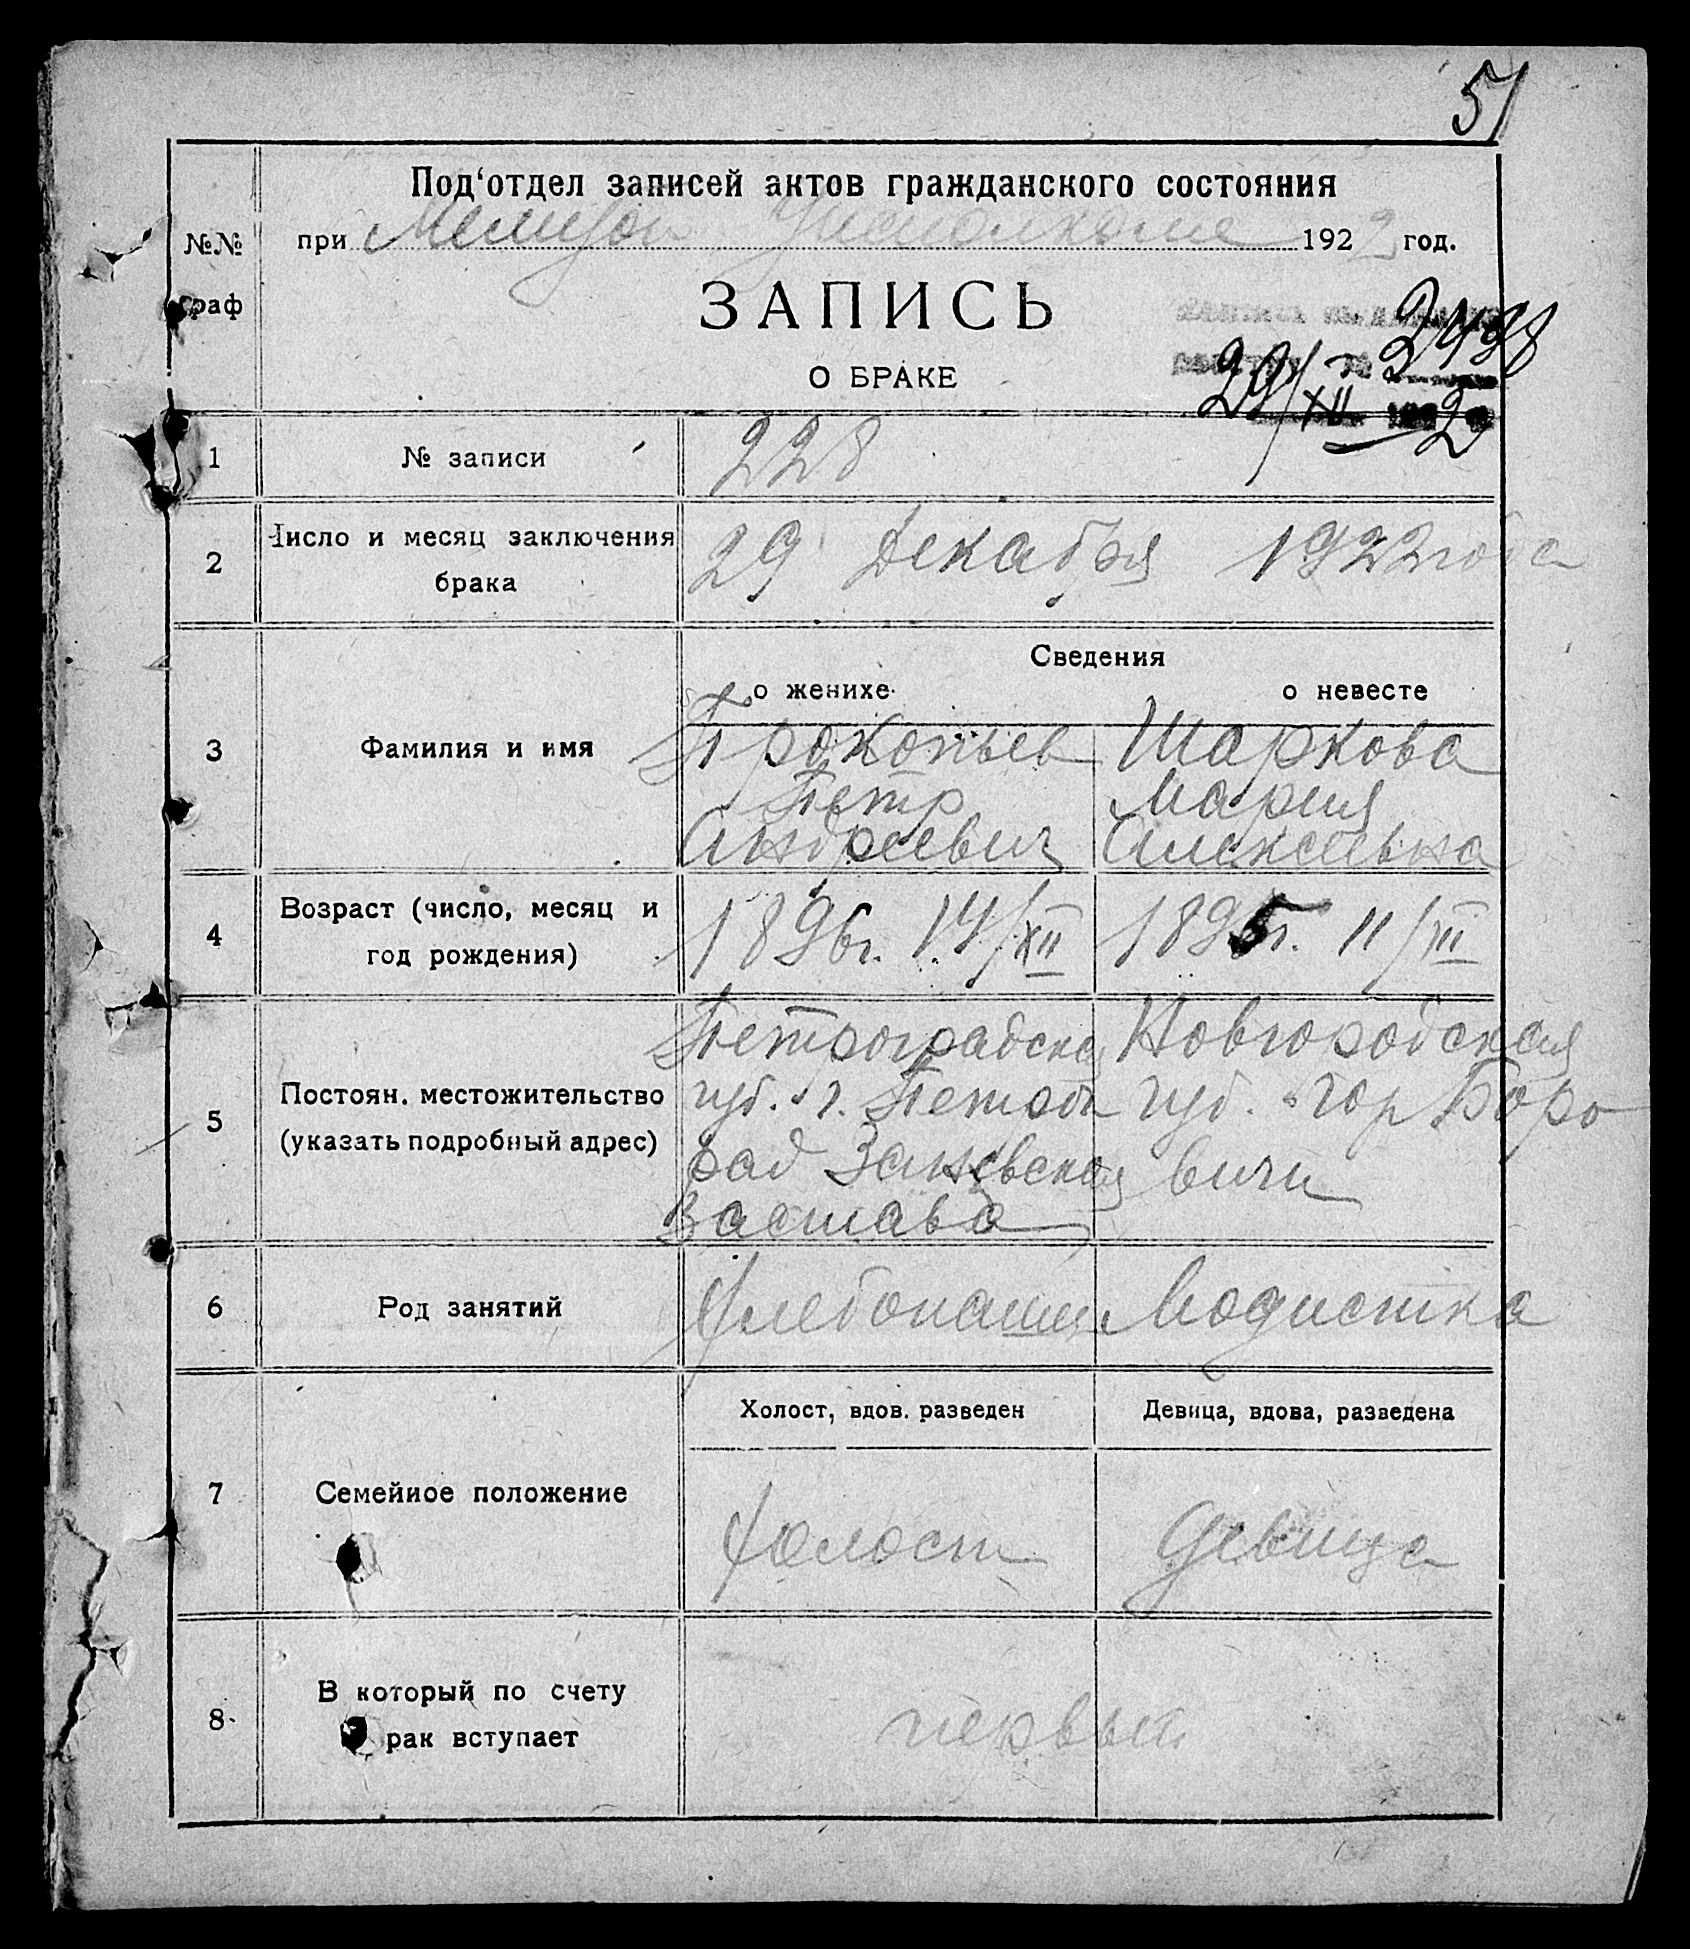 51
Под‘отдел записей актов гражданского состояния
№№
граф
при Исполкоме 1922 год.
ЗАПИСЬ
О БРАКЕ
2498
29/XII 1922
1 № записи 228
2 Число и месяц заключения
брака
29 Декабря 1922 года
Сведения
о женихе о невесте
3 Фамилия и имя
Прокопьев Шаркова
Петр Мария
Андреевич Алексеевна
4 Возраст (число, месяц и
год рождения)
1896г. 14/XII 1895г. 11/III
5 Постоян. местожительство
(указать подробный адрес)
Петроградская Новгородская
губ. г. Петрог губ. гор Боро
рад Заневская вичи
Застава
6 Род занятий Хлебопашец Модистка
Холост, вдов. разведен Девица, вдова, разведена
7 Семейное положение
Холост Девица
8 В который по счету
рак вступает
первый